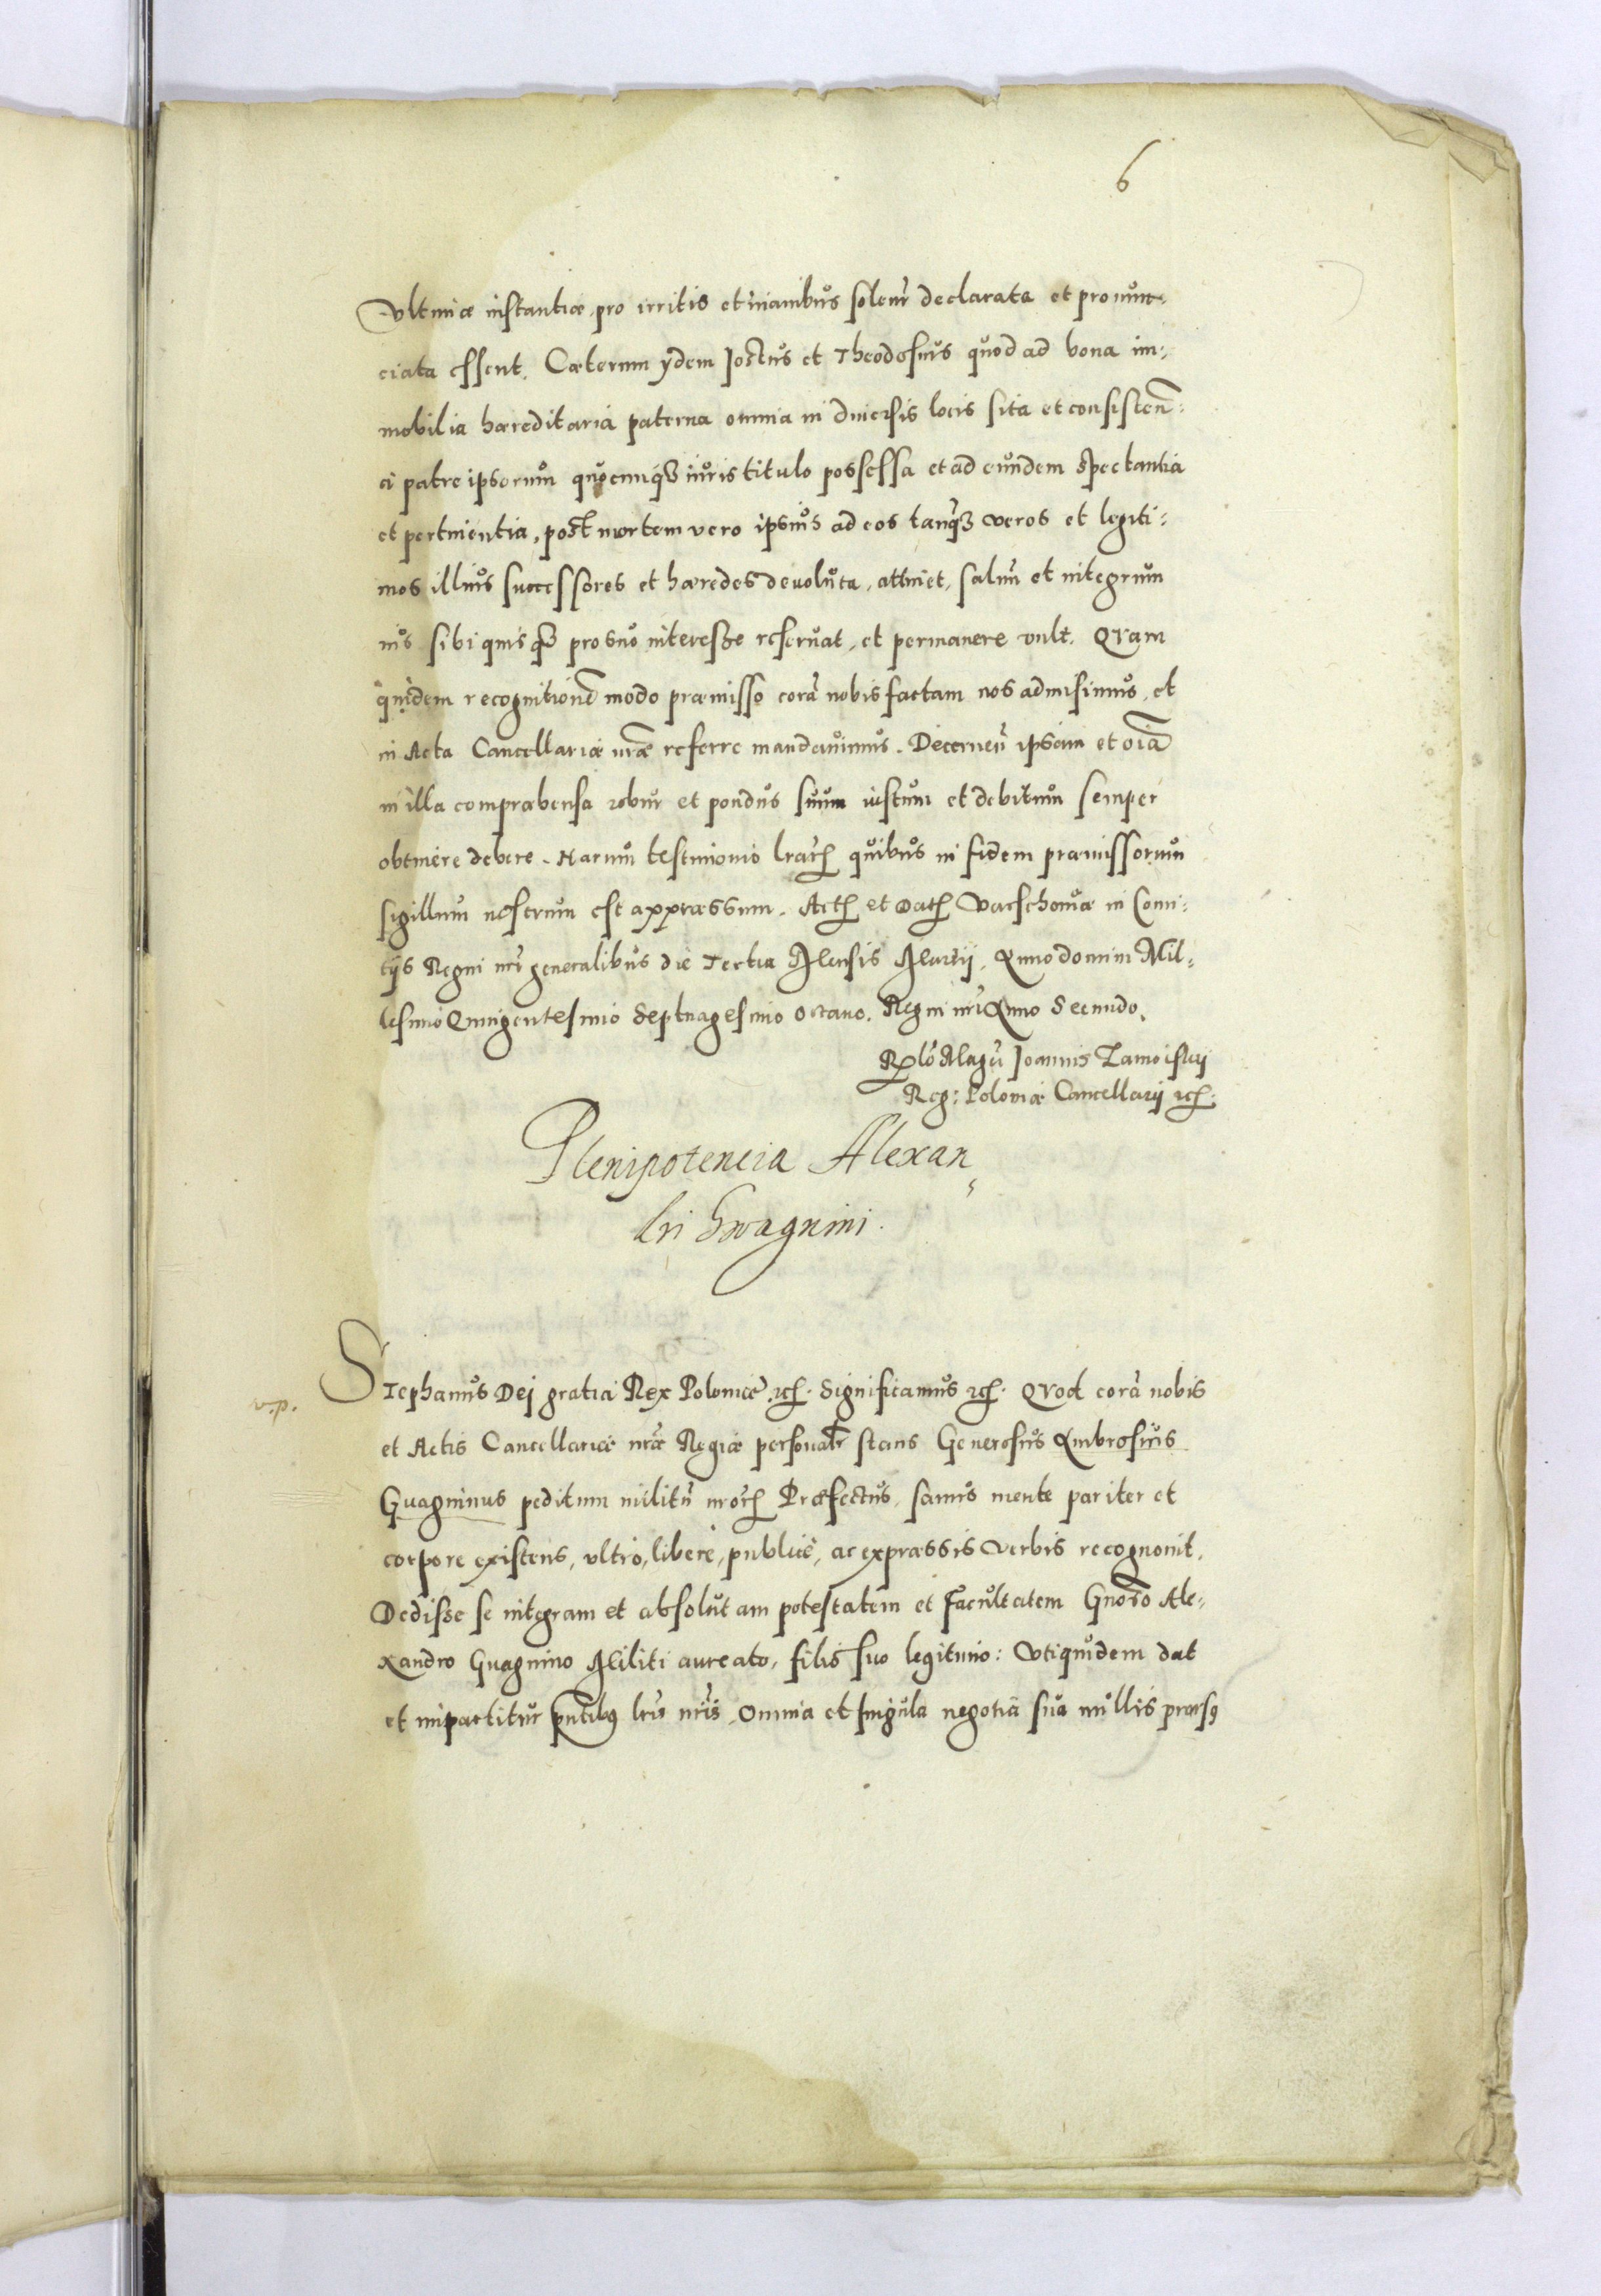 6
Vltimæ instantiæ, pro irritis et inanibus solenr̃ declarata et pronun-
ciata essent. Cæterum ydem Jostus et Theodosius quod ad bona im-
mobilia hæreditaria paterna omnia in diuersis locis sita et consisten:
a patre ipsorum quocumqʒ iuris titulo possessa et ad eundem spectantia
et pertinentia, post mortem vero ipsius ad eos tanqʒ veros et legiti-
mos illius successores et hæredes deuoluta, attinet, saluũ et integrum
ius sibi quisqʒ pro suo interesse reseruat, et permanere vult. Quam
quidem recognitionẽ modo præmisso corã nobis factam nos admisimus, et
in Acta Cancellariæ nr̃æ referre mandauimus. Decerneñ ipsam et oĩa
in illa compræhensa robur et pondus suum iustum et debitum semper
obtinere debere. Harum testimonio lrarꝝ quibus in fidem præmissorum
sigillum nostrum est appræssum. Actꝝ et Datꝝ Varschouiæ in Comi-
tijs Regni nr̃i generalibus die Tertia Mensis Martij, Anno domini Mil-
lesimo Quingentesimo Septuagesimo Octauo. Regni nr̃i Anno Secundo.
Rℓo Magcĩ Joannis Zamoiscij
Reg: Poloniæ Cancellarij ꝛcꝝ.
Plenipotencia Alexan
dri Gwagnini.
v.p.
Stephanus Dej gratia Rex Poloniæ ꝛcꝝ. Significamus ꝛcꝝ. Quod corã nobis
et Actis Cancellariæ nr̃æ Regiæ personalr̃ stans Generosus Ambrosius
Guagninus peditum militũ nr̃orꝝ Præfectus, sanus mente pariter et
corpore existens, vltro, libere, publice, ac expræssis verbis recognouit,
Dedisse se integram et absolutam potestatem et facultatem Gnõso Ale-
xandro Guagnino Militi aureato, filio suo legitimo: Vtiquidem dat
et impartitur pñtibꝯ lris nr̃is, Omnia et singula negotia sua nullis prorsꝯ